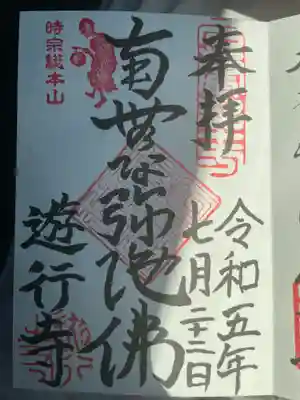 奉拝
令和五年
七月二十二日
南無阿弥陀佛
時宗総本山
遊行寺